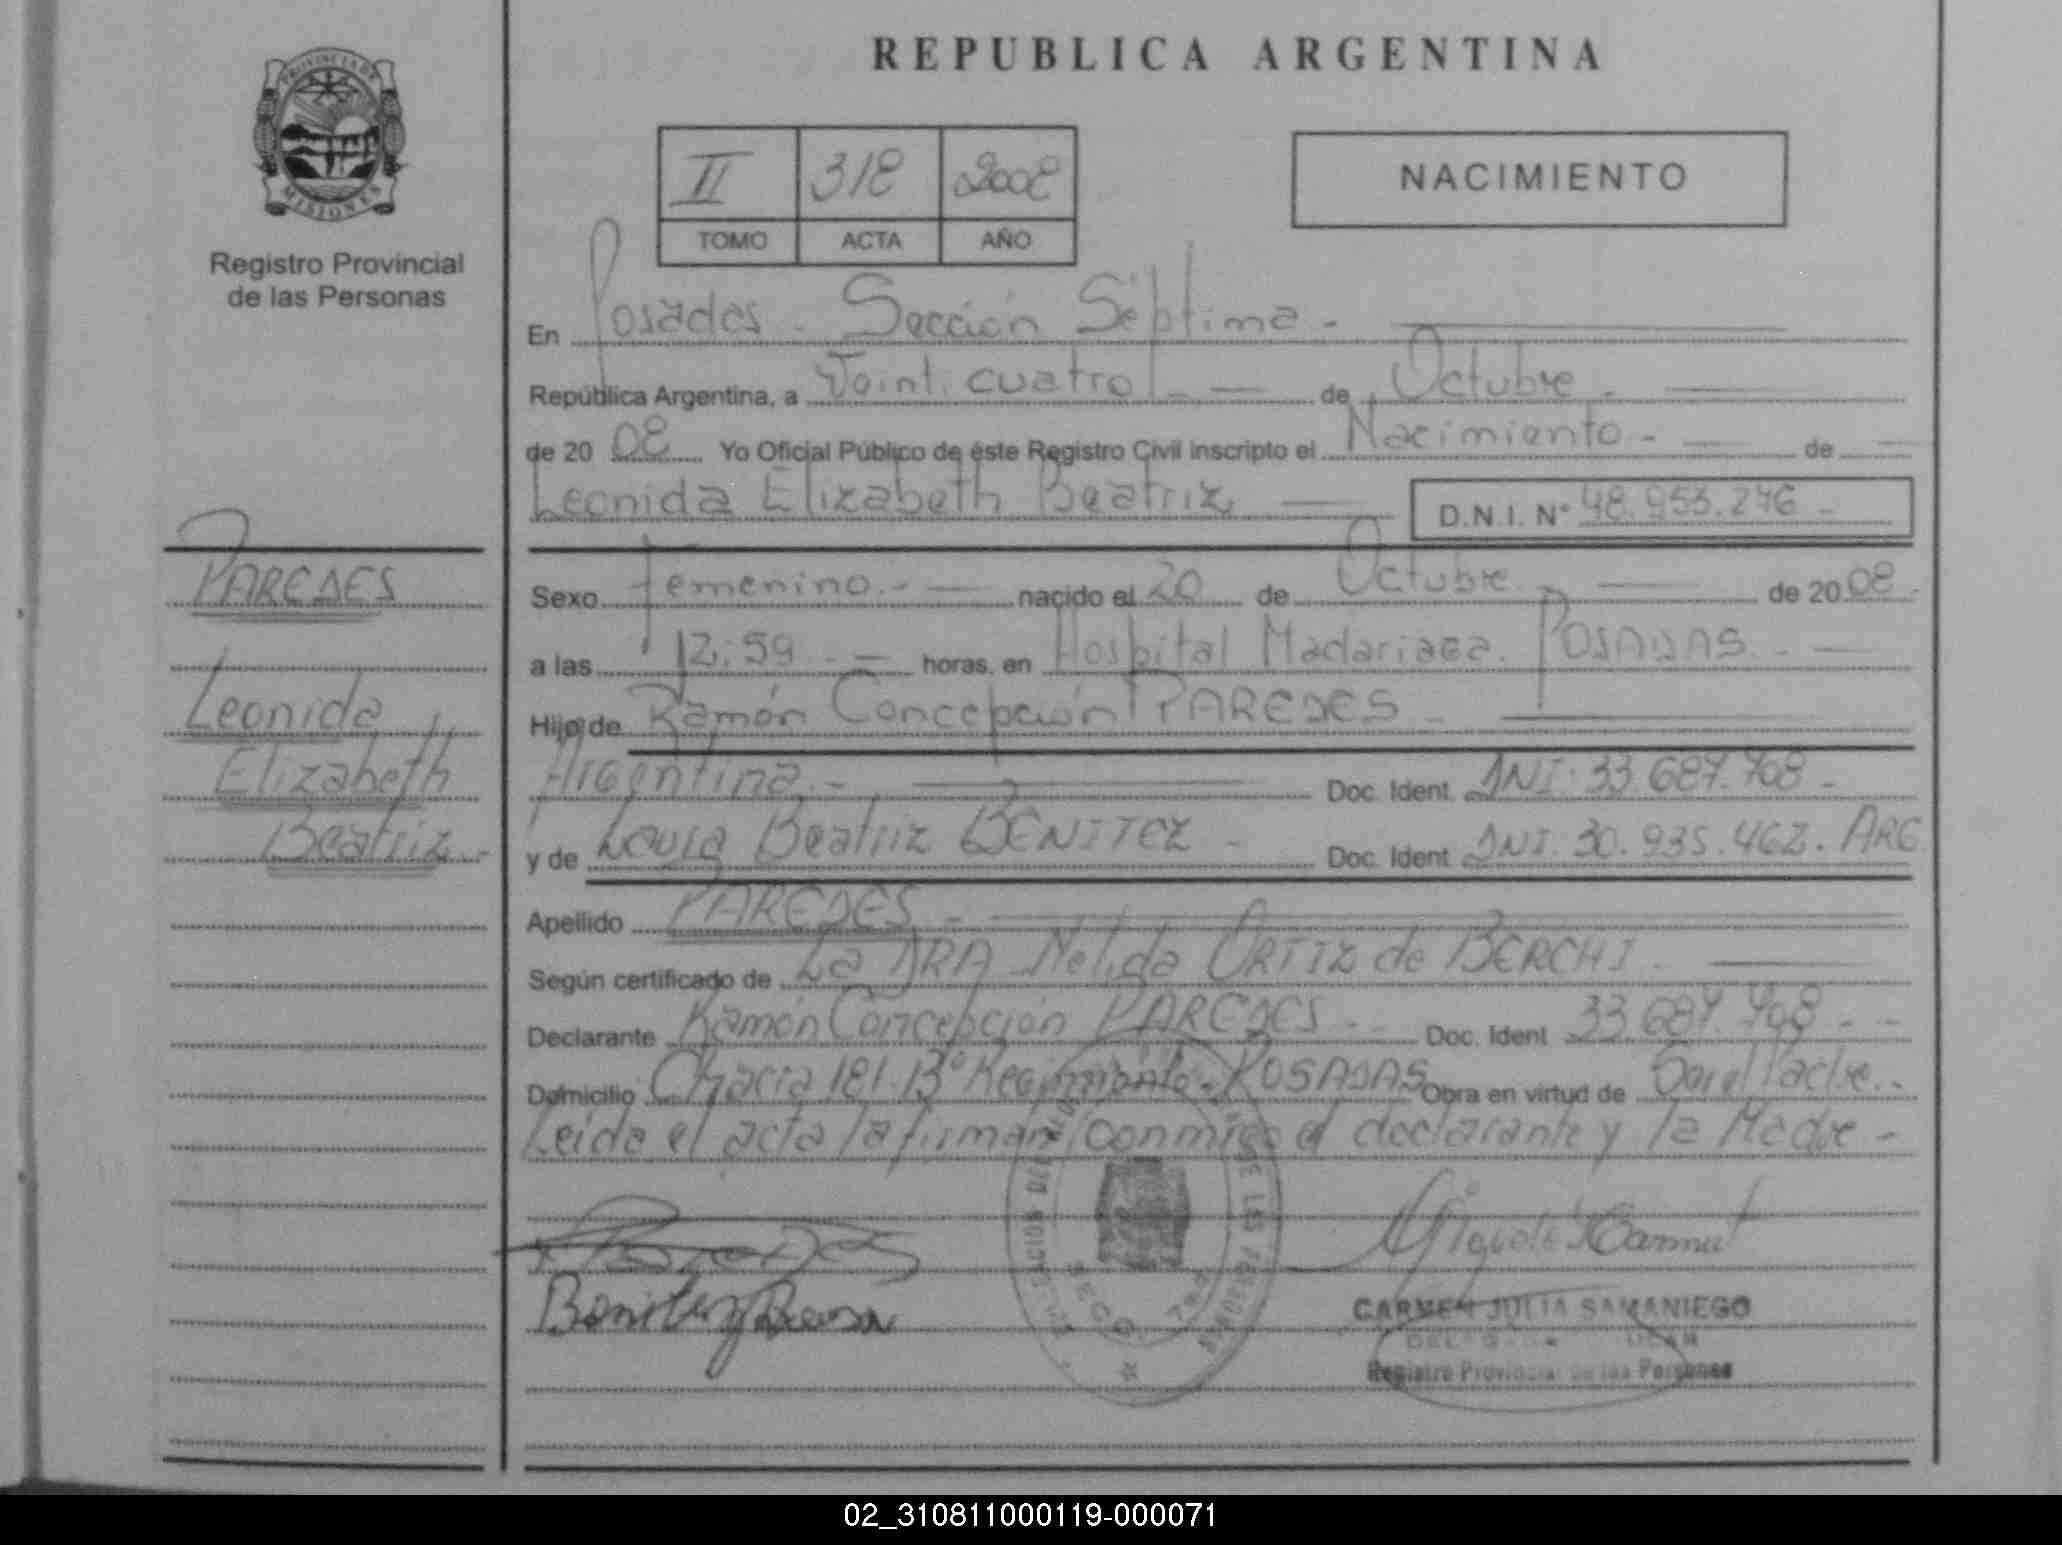 REPUBLICA ARGENTINA
PROVINCIA DE
MISIONES
Registro Provincial
de las Personas
II 318 2008
TOMO ACTA AÑO
NACIMIENTO
En Posadas - Sección Séptima -
República Argentina, a Veinticuatro - de Octubre -
de 20 08 Yo Oficial Público de éste Registro Civil inscripto el Nacimiento - de
Leonida Elizabeth Beatriz D.N.I. N° 48.953.276 -
PAREDES
Leonida
Elizabeth
Beatriz -
Sexo femenino.- nacido el 20 de Octubre - de 20 08 -
a las 12:59 - horas, en Hospital Madariaga. POSADAS. -
Hijo de Ramón Concepción PAREDES -
Argentina.- Doc. Ident. DNI: 33.687.768 -
y de Laura Beatriz BENITEZ - Doc. Ident. DNI. 30.935.462. ARG
Apellido PAREDES -
Según certificado de La DRA Nelida ORTIZ de BERCHI -
Declarante Ramón Concepción PAREDES - - Doc. Ident. 33.687.768 - -
Domicilio Chacra 181. B° Regimiento - POSADAS Obra en virtud de
Leida el acta la firman conmigo el declarante y la Madre -
Benitez
CARMEN JULIA SAMANIEGO
Registro Provincial de las Personas
02_310811000119-000071